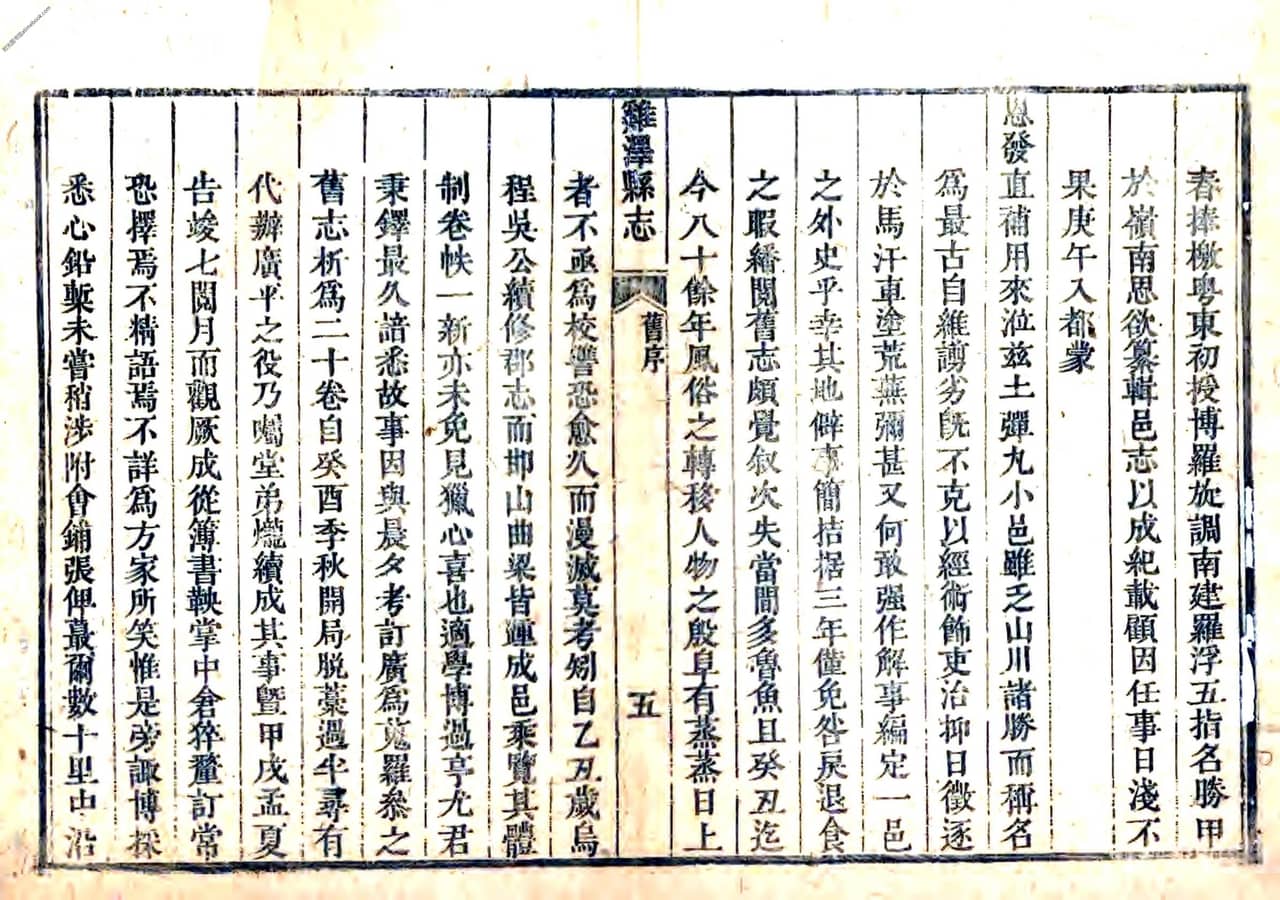 春捧檄粤東初授博羅旋調南建羅浮五指名勝甲
於嶺南思欲纂輯邑志以成紀載顧因任事日淺不
果庚午入都蒙
恩發直補用來涖兹土彈丸小邑雖乏山川諸勝而稱名
爲最古自維謭劣旣不克以經術飾吏治抑日徵逐
於馬汗車塗荒蕪彌甚又何敢强作解事編定一邑
之外史乎幸其地僻事簡拮据三年僅免咎戾退食
之暇繙閱舊志頗覺叙次失當間多魯魚且癸丑迄
今八十餘年風俗之轉移人物之殷阜有蒸蒸日上
雞澤縣志
舊序
五
者不亟爲校讐恐愈久而漫滅莫考矧自乙丑歲烏
程吳公續修郡志而邯山曲梁皆運成邑乘覽其體
制卷帙一新亦未免見獵心喜也適學博過亭尤君
秉鐸最久諳悉故事因與晨夕考訂廣爲蒐羅叅之
舊志析爲二十卷自癸酉季秋開局脱藁過半尋有
代辦廣平之役乃囑堂弟爖續成其事曁甲戌孟夏
告竣七閱月而觀厥成從簿書鞅掌中倉猝釐訂常
恐擇焉不精語焉不詳爲方家所笑惟是旁諏博採
悉心鉛槧未嘗稍涉附會鋪張俾蕞爾數十里山沿